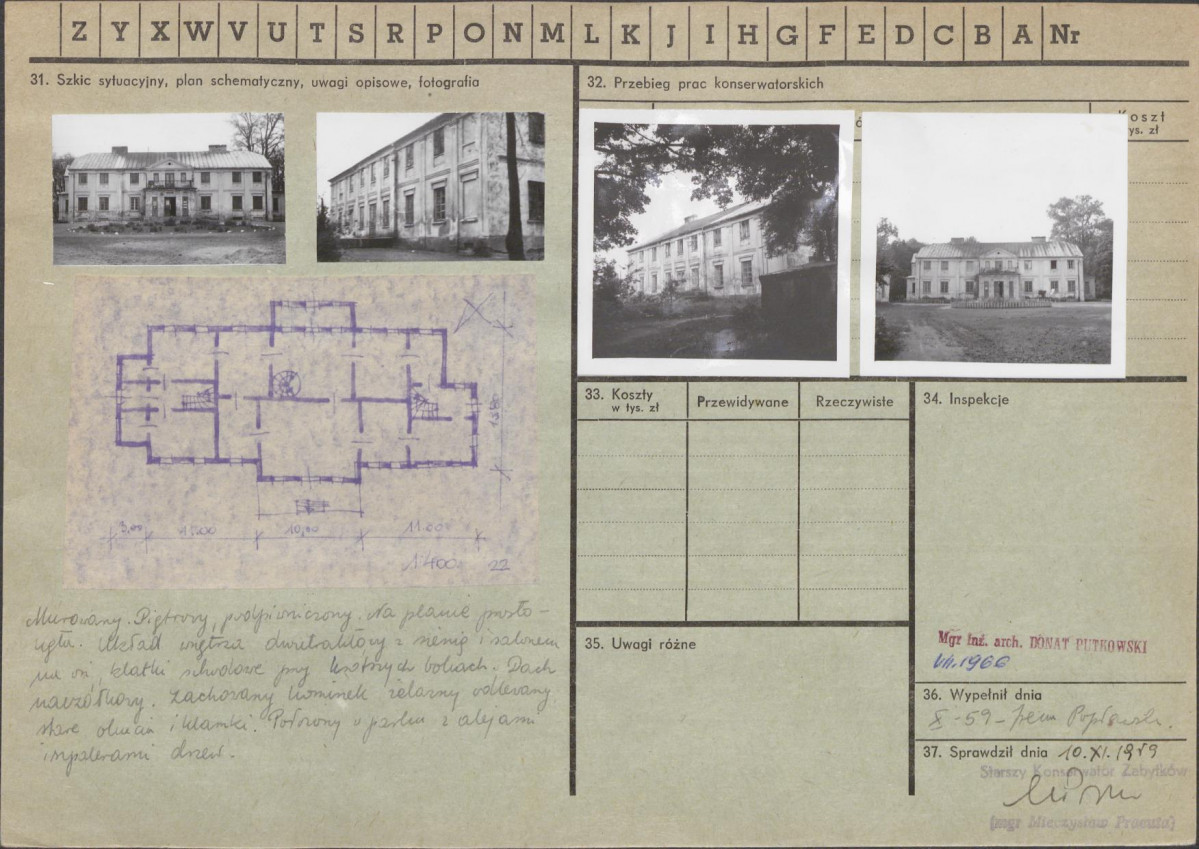 Z Y X W V U T S R P O N M L K J I H G F E D C B A Nr
31. Szkic sytuacyjny, plan schematyczny, uwagi opisowe, fotografia
32. Przebieg prac konserwatorskich
Koszt
ys. zł
3,00
10,00
11.00
1:400
22
Murowany. Piętrowy, podpiwniczony. Na planie prosto-
kąta. Układ wnętrza dwutraktowy z sienią i salonem
na osi, klatki schodowe przy bokach. Dach
naczółkowy. Zachowany kominek żelazny odlewany
stare okucia i klamki. Położony w parku z alejami
i szpalerami drzew.
33. Koszty
w tys. zł
Przewidywane
Rzeczywiste
34. Inspekcje
35. Uwagi różne
Mgr inż. arch. DONAT PUTKOWSKI
VII.1966
36. Wypełnił dnia
X-59 - Irena
37. Sprawdził dnia 10.XI.1959
Starszy Konserwator Zabytków
(mgr Mieczysław)